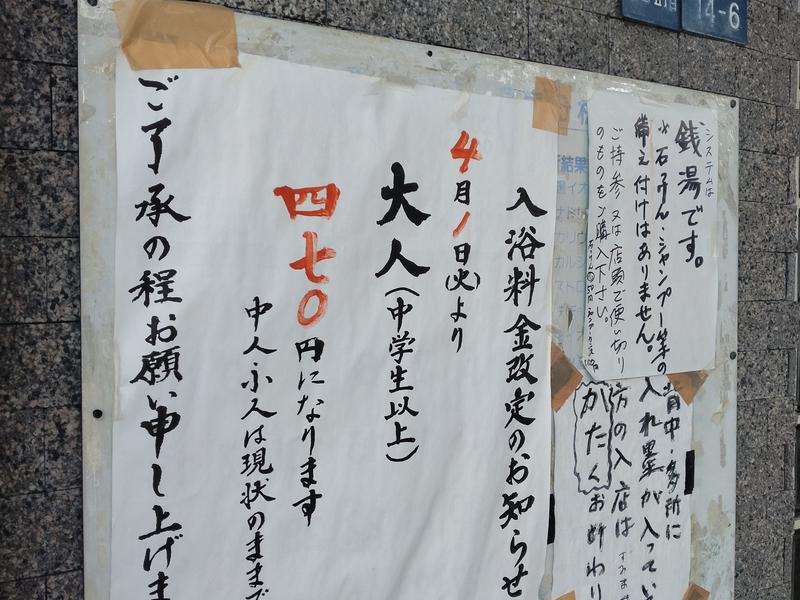 14-6
システムは
銭湯です。
石けん・シャンプー等の
備え付けはありません。
ご持参又は店頭で使い切り
のものをご購入下さい。
背中・多所に
入れ墨が入ってい
方の入店は
かたくお断わり
入浴料金改定のお知らせ
4月1日(火)より
大人(中学生以上)
四七〇円になります
中人・小人は現状のままで
ご了承の程お願い申し上げま